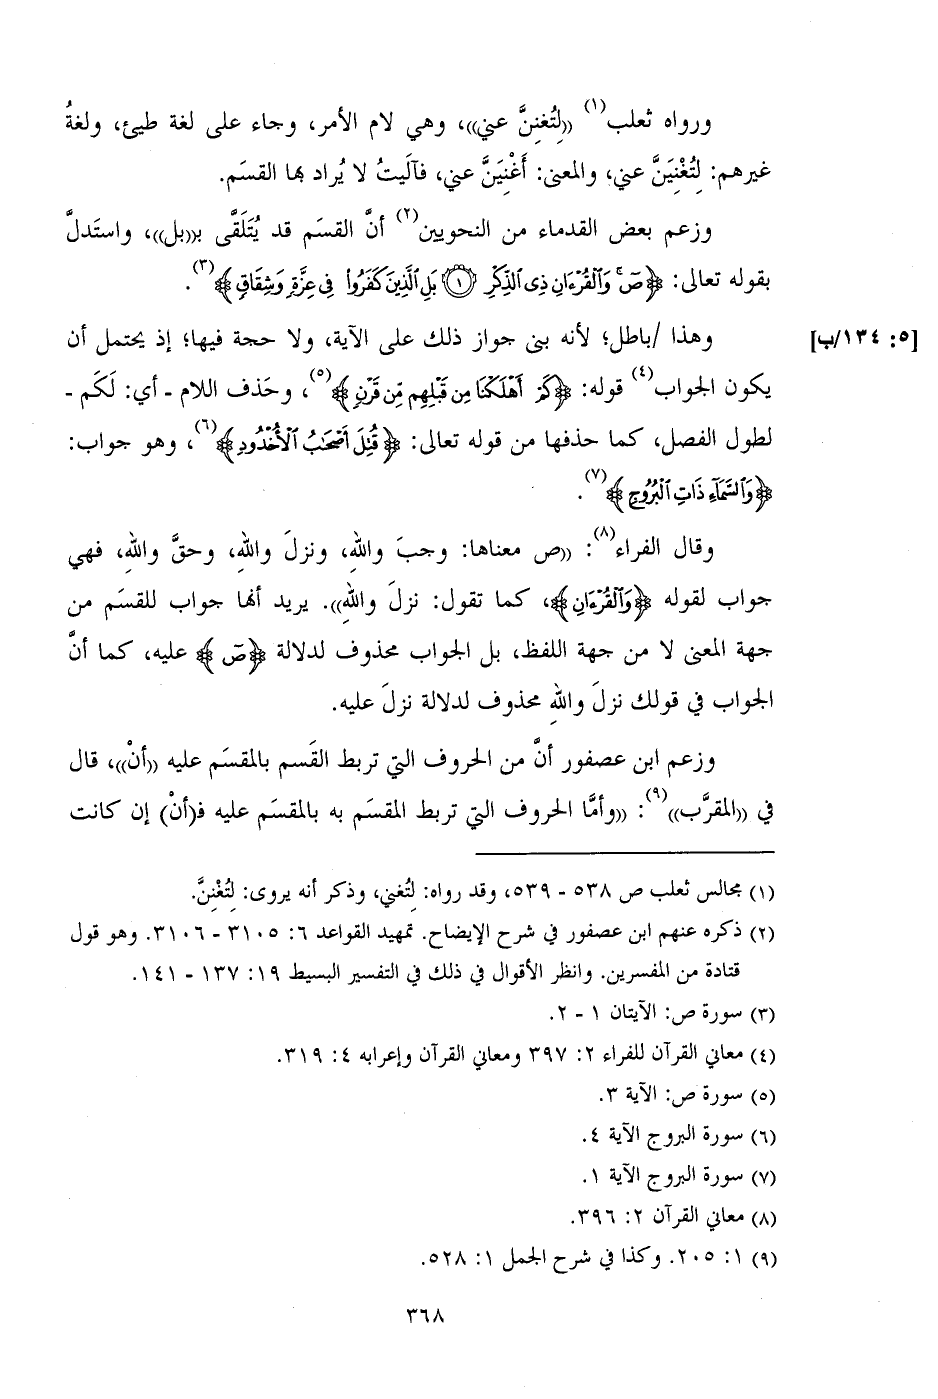 ورواه ثعلب(١) ((لِتُغنِنَّ عني))، وهي لام الأمر، وجاء على لغة طيئ، ولغةُ
غيرهم: لِتُغْنِيَنَّ عني، والمعنى: أَغْنِيَنَّ عني، فآلَيتُ لا يُراد بها القسَم.
وزعم بعض القدماء من النحويين(٢) أنَّ القسَم قد يُتَلَقَّى بـ((بل))، واستَدلَّ
بقوله تعالى: ﴿صٓ ۚ وَٱلۡقُرۡءَانِ ذِي ٱلذِّكۡرِ ١ بَلِ ٱلَّذِينَ كَفَرُواْ فِي عِزَّةٖ وَشِقَاقٖ﴾(٣).
[٥: ١٣٤/ب] وهذا /باطل؛ لأنه بنى جواز ذلك على الآية، ولا حجة فيها؛ إذ يحتمل أن
يكون الجواب(٤) قوله: ﴿كَمۡ أَهۡلَكۡنَا مِن قَبۡلِهِم مِّن قَرۡنٖ﴾(٥)، وحَذف اللام - أي: لَكَم -
لطول الفصل، كما حذفها من قوله تعالى: ﴿قُتِلَ أَصۡحَٰبُ ٱلۡأُخۡدُودِ﴾(٦)، وهو جواب:
﴿وَٱلسَّمَآءِ ذَاتِ ٱلۡبُرُوجِ﴾(٧).
وقال الفراء(٨): ((ص معناها: وجبَ واللهِ، ونزلَ واللهِ، وحقَّ واللهِ، فهي
جواب لقوله ﴿وَٱلۡقُرۡءَانِ﴾، كما تقول: نزلَ واللهِ)). يريد أنها جواب للقسَم من
جهة المعنى لا من جهة اللفظ، بل الجواب محذوف لدلالة ﴿صٓ﴾ عليه، كما أنَّ
الجواب في قولك نزلَ واللهِ محذوف لدلالة نزلَ عليه.
وزعم ابن عصفور أنَّ من الحروف التي تربط القَسم بالمقسَم عليه ((أنْ))، قال
في ((المقرَّب))(٩): ((وأمَّا الحروف التي تربط المقسَم به بالمقسَم عليه فـ(أنْ) إن كانت
(١) مجالس ثعلب ص ٥٣٨ - ٥٣٩، وقد رواه: لِتُغني، وذكر أنه يروى: لِتُغْنِنَّ.
(٢) ذكره عنهم ابن عصفور في شرح الإيضاح. تمهيد القواعد ٦: ٣١٠٥ - ٣١٠٦. وهو قول
قتادة من المفسرين. وانظر الأقوال في ذلك في التفسير البسيط ١٩: ١٣٧ - ١٤١.
(٣) سورة ص: الآيتان ١ - ٢.
(٤) معاني القرآن للفراء ٢: ٣٩٧ ومعاني القرآن وإعرابه ٤: ٣١٩.
(٥) سورة ص: الآية ٣.
(٦) سورة البروج الآية ٤.
(٧) سورة البروج الآية ١.
(٨) معاني القرآن ٢: ٣٩٦.
(٩) ١: ٢٠٥. وكذا في شرح الجمل ١: ٥٢٨.
٣٦٨